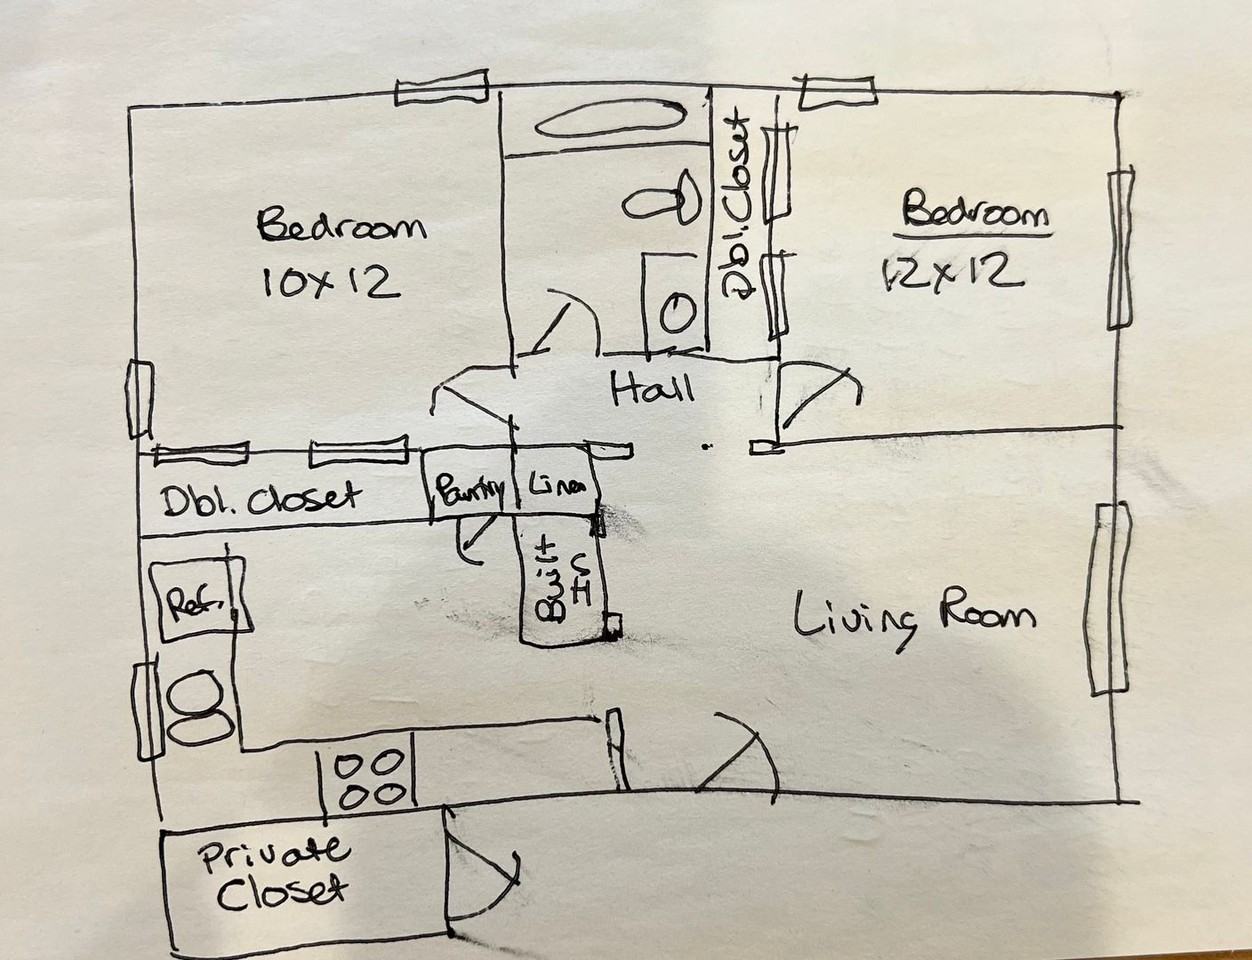 Bedroom
10x12
Dbl. Closet
Bedroom
12x12
Hall
Dbl. Closet
Pantry
Linen
Built
Ref.
Living Room
Private
Closet